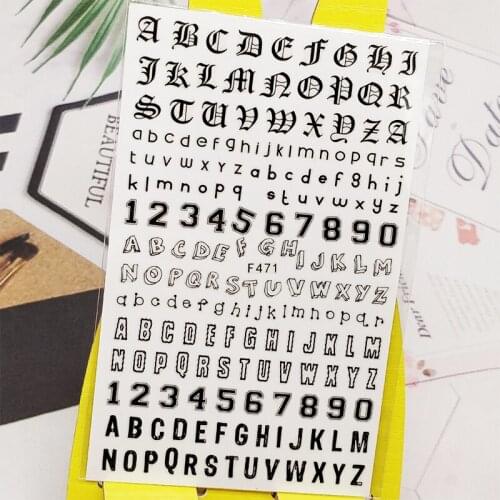 A B C D E F G H I
J K L M N O P Q R
S T U V W X Y Z A
a b c d e f g h i j k l m n o p q r s
t u v w x y z a b c d e f g h i j
k l m n o p q s t u v w x y z
1 2 3 4 5 6 7 8 9 0
A B C D E F G H I J K L M
F471
N O P Q R S T U V W X Y Z
a b c d e f g h i j k l m n o p q r
A B C D E F G H I J K L M
N O P Q R S T U V W X Y Z
1 2 3 4 5 6 7 8 9 0
A B C D E F G H I J K L M
N O P Q R S T U V W X Y Z
BEAUTIFUL
Save
Date